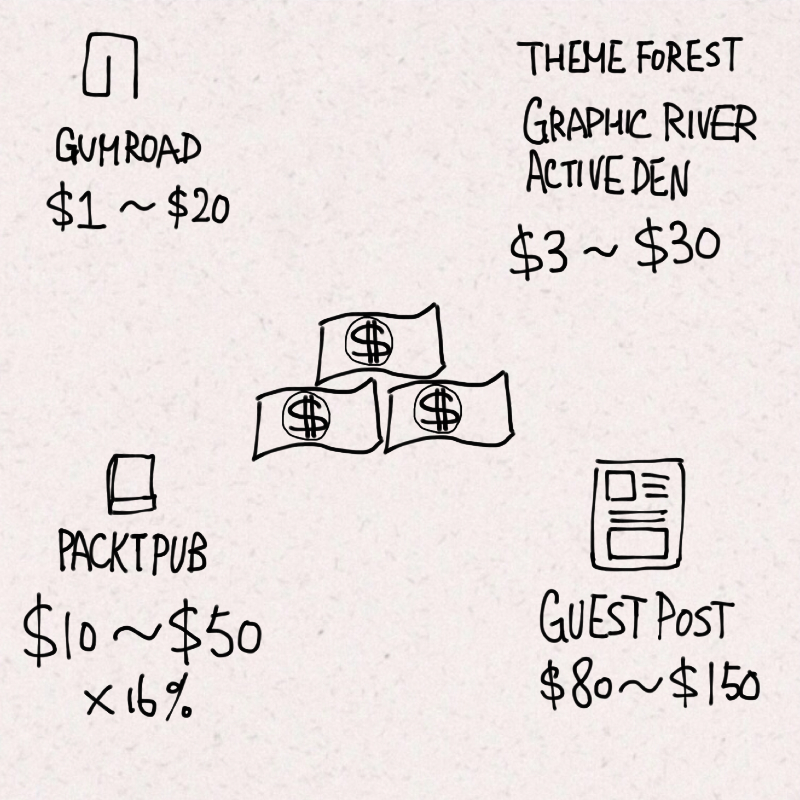 GUMROAD
$1 ~ $20
THEME FOREST
GRAPHIC RIVER
ACTIVE DEN
$3 ~ $30
$
$ $
PACKT PUB
$10 ~ $50
x 16%
GUEST POST
$80 ~ $150